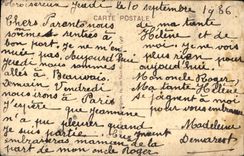 Jeudi le 10 septembre 1936
CARTE POSTALE
Chers Parents nous
sommes rentrés à
bon port. Je ne m'en
suis pas
Jeudi nous sommes
allés à Beauvais.
Demain Vendredi
nous irons à Paris
j'espère que Jeannine
n'a pu pleurer quand
je suis partie
embrasserai maman de la
part de mon oncle Roger
de ma tante
Hélène et de
moi. Je ne vois
plus rien pour
aujourd'hui.
Mon oncle Roger
Ma tante Hélène
se joignent a moi
pour vous embrasser
Madeleine
Demarest